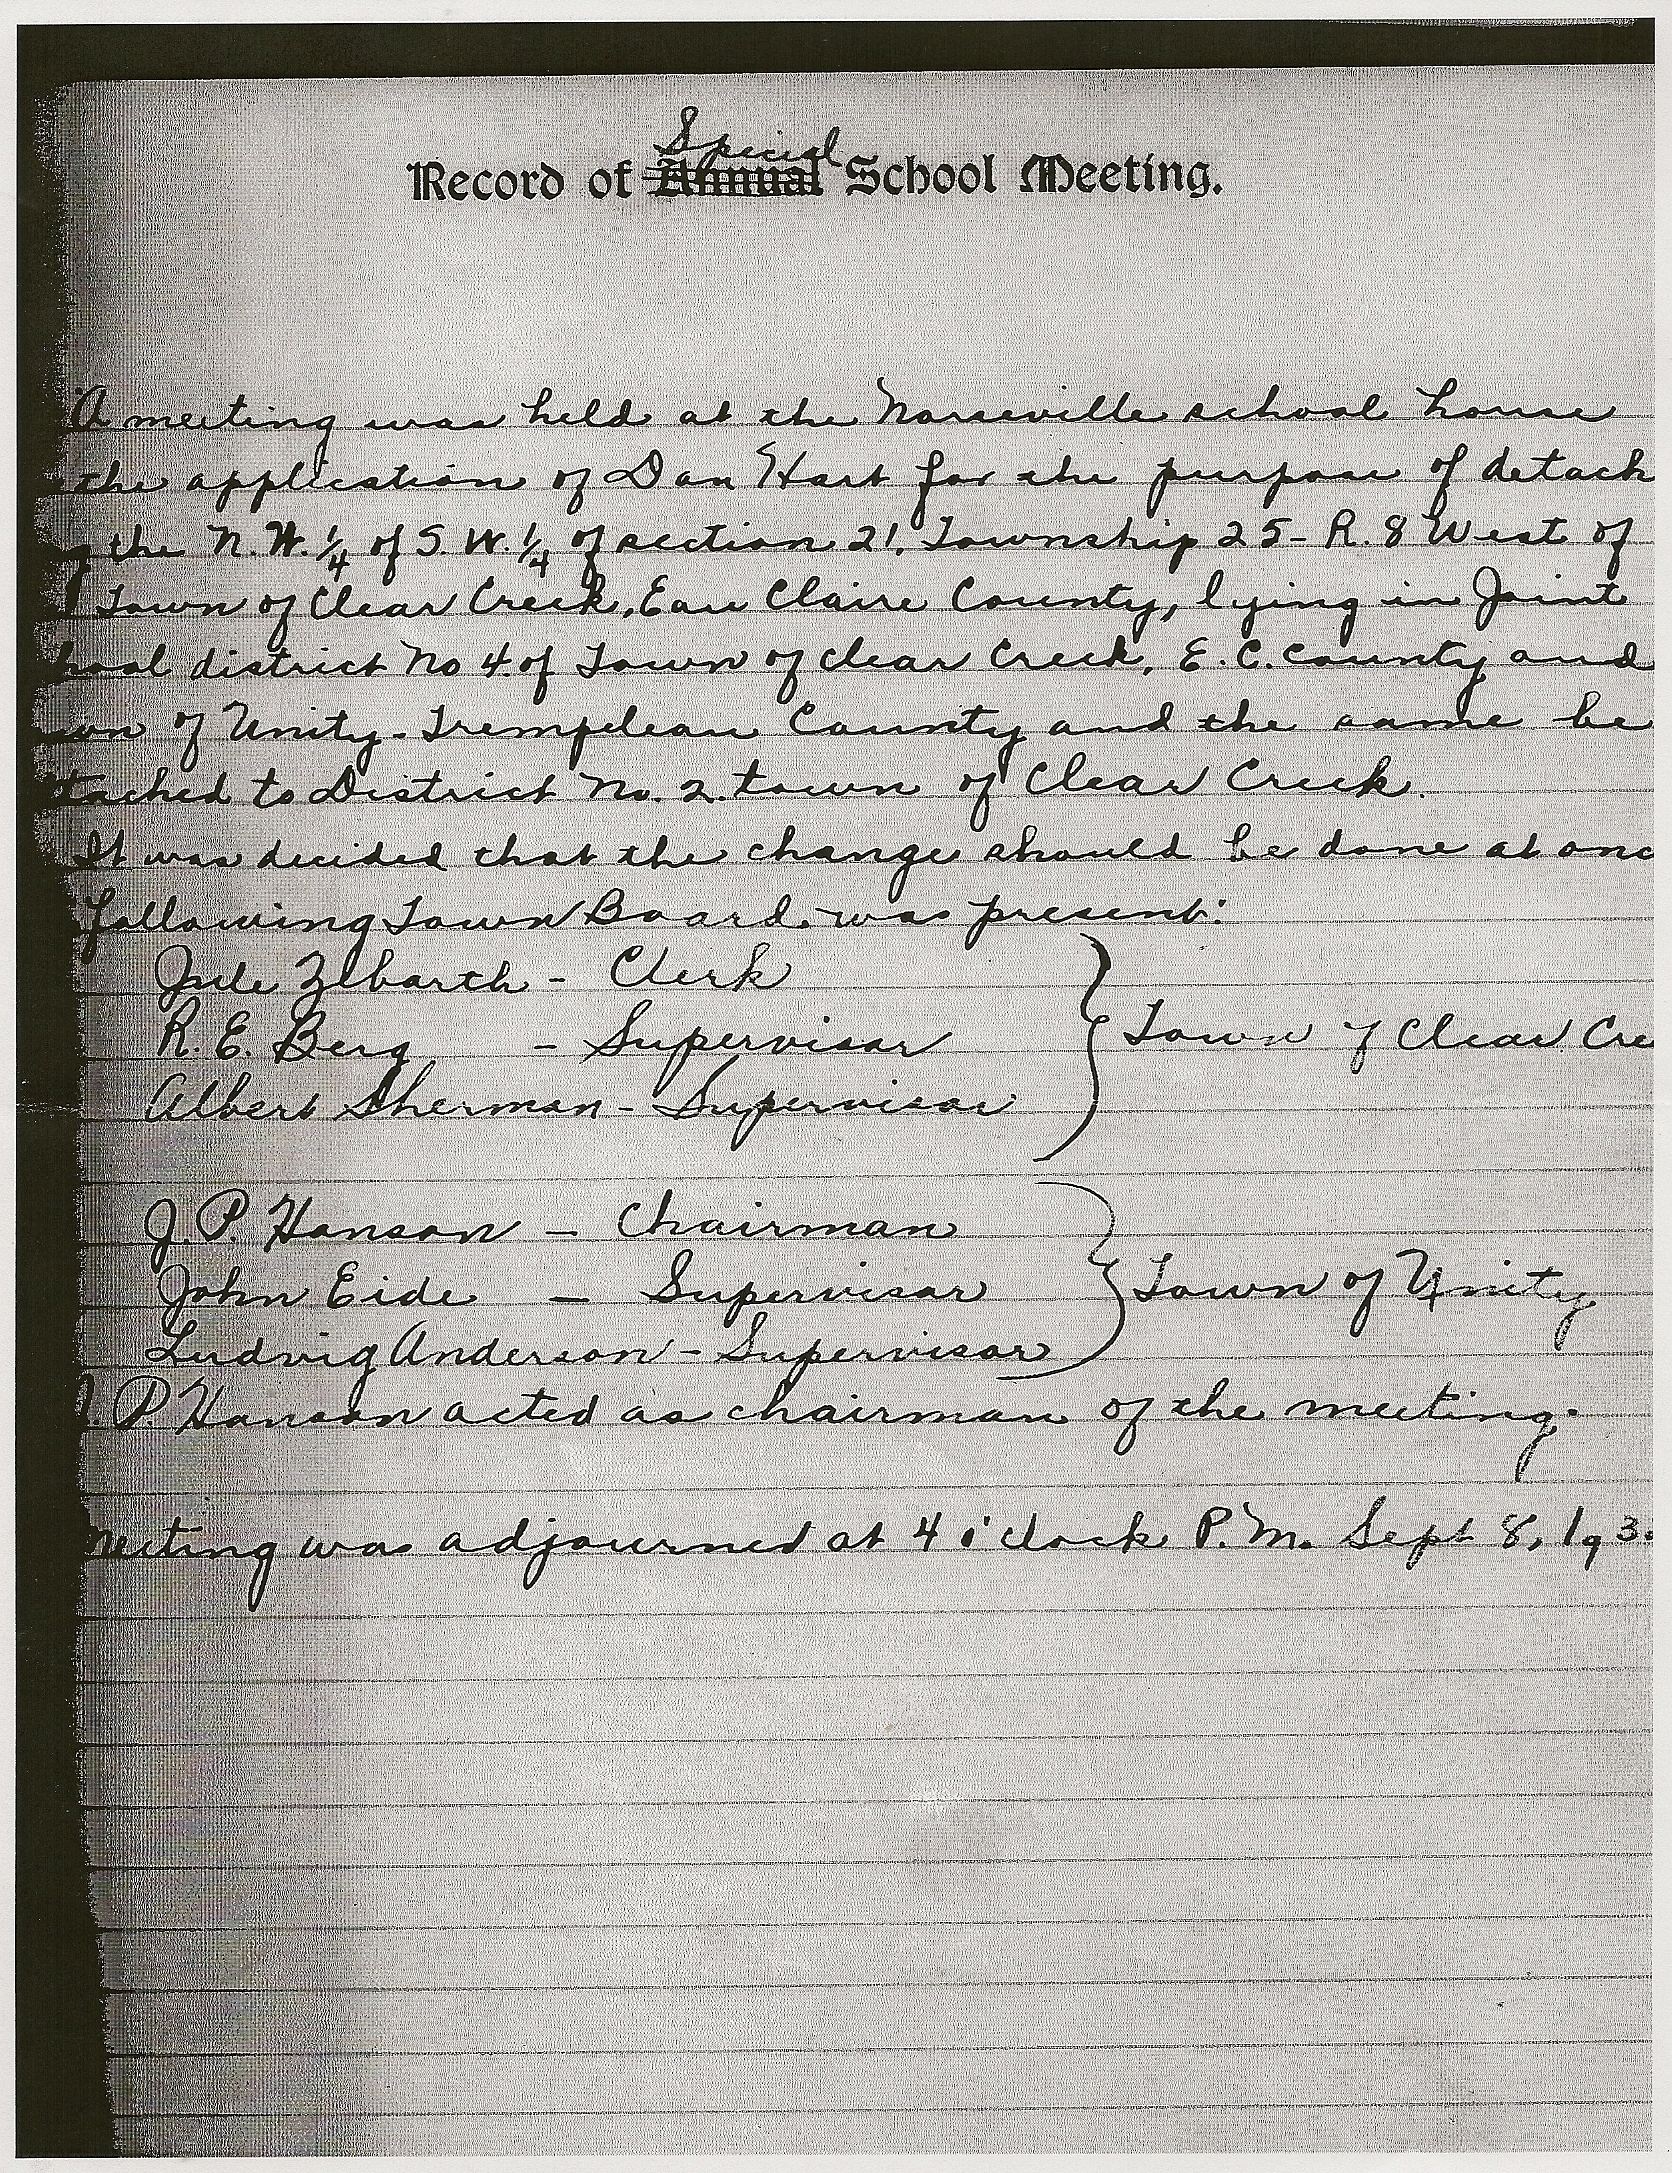 Special
Record of Annual School Meeting.
A meeting was held at the Norseville school house
the application of Dan Hart for the purpose of detach
g the N.W. 1/4 of S.W. 1/4 of section 21, Township 25- R. 8 West of
Town of Clear Creek, Eau Claire County, lying in Joint
hool district No 4. of Town of Clear Creek, E. C. County and
wn of Unity- Trempleau County and the same be
tached to District No. 2. town of Clear Creek.
It was decided that the change should be done at onc
following Town Board was present:
Jule Zlbarth - Clerk
R. E. Berg - Supervisor
Town of Clear Cre
Albert Sherman - Supervisor
J. P. Hanson - Chairman
John Eide - Supervisor
Town of Unity
Ludvig Anderson - Supervisor
J. P. Hanson acted as chairman of the meeting.
Meeting was adjourned at 4 o'clock P. M. Sept 8, 193